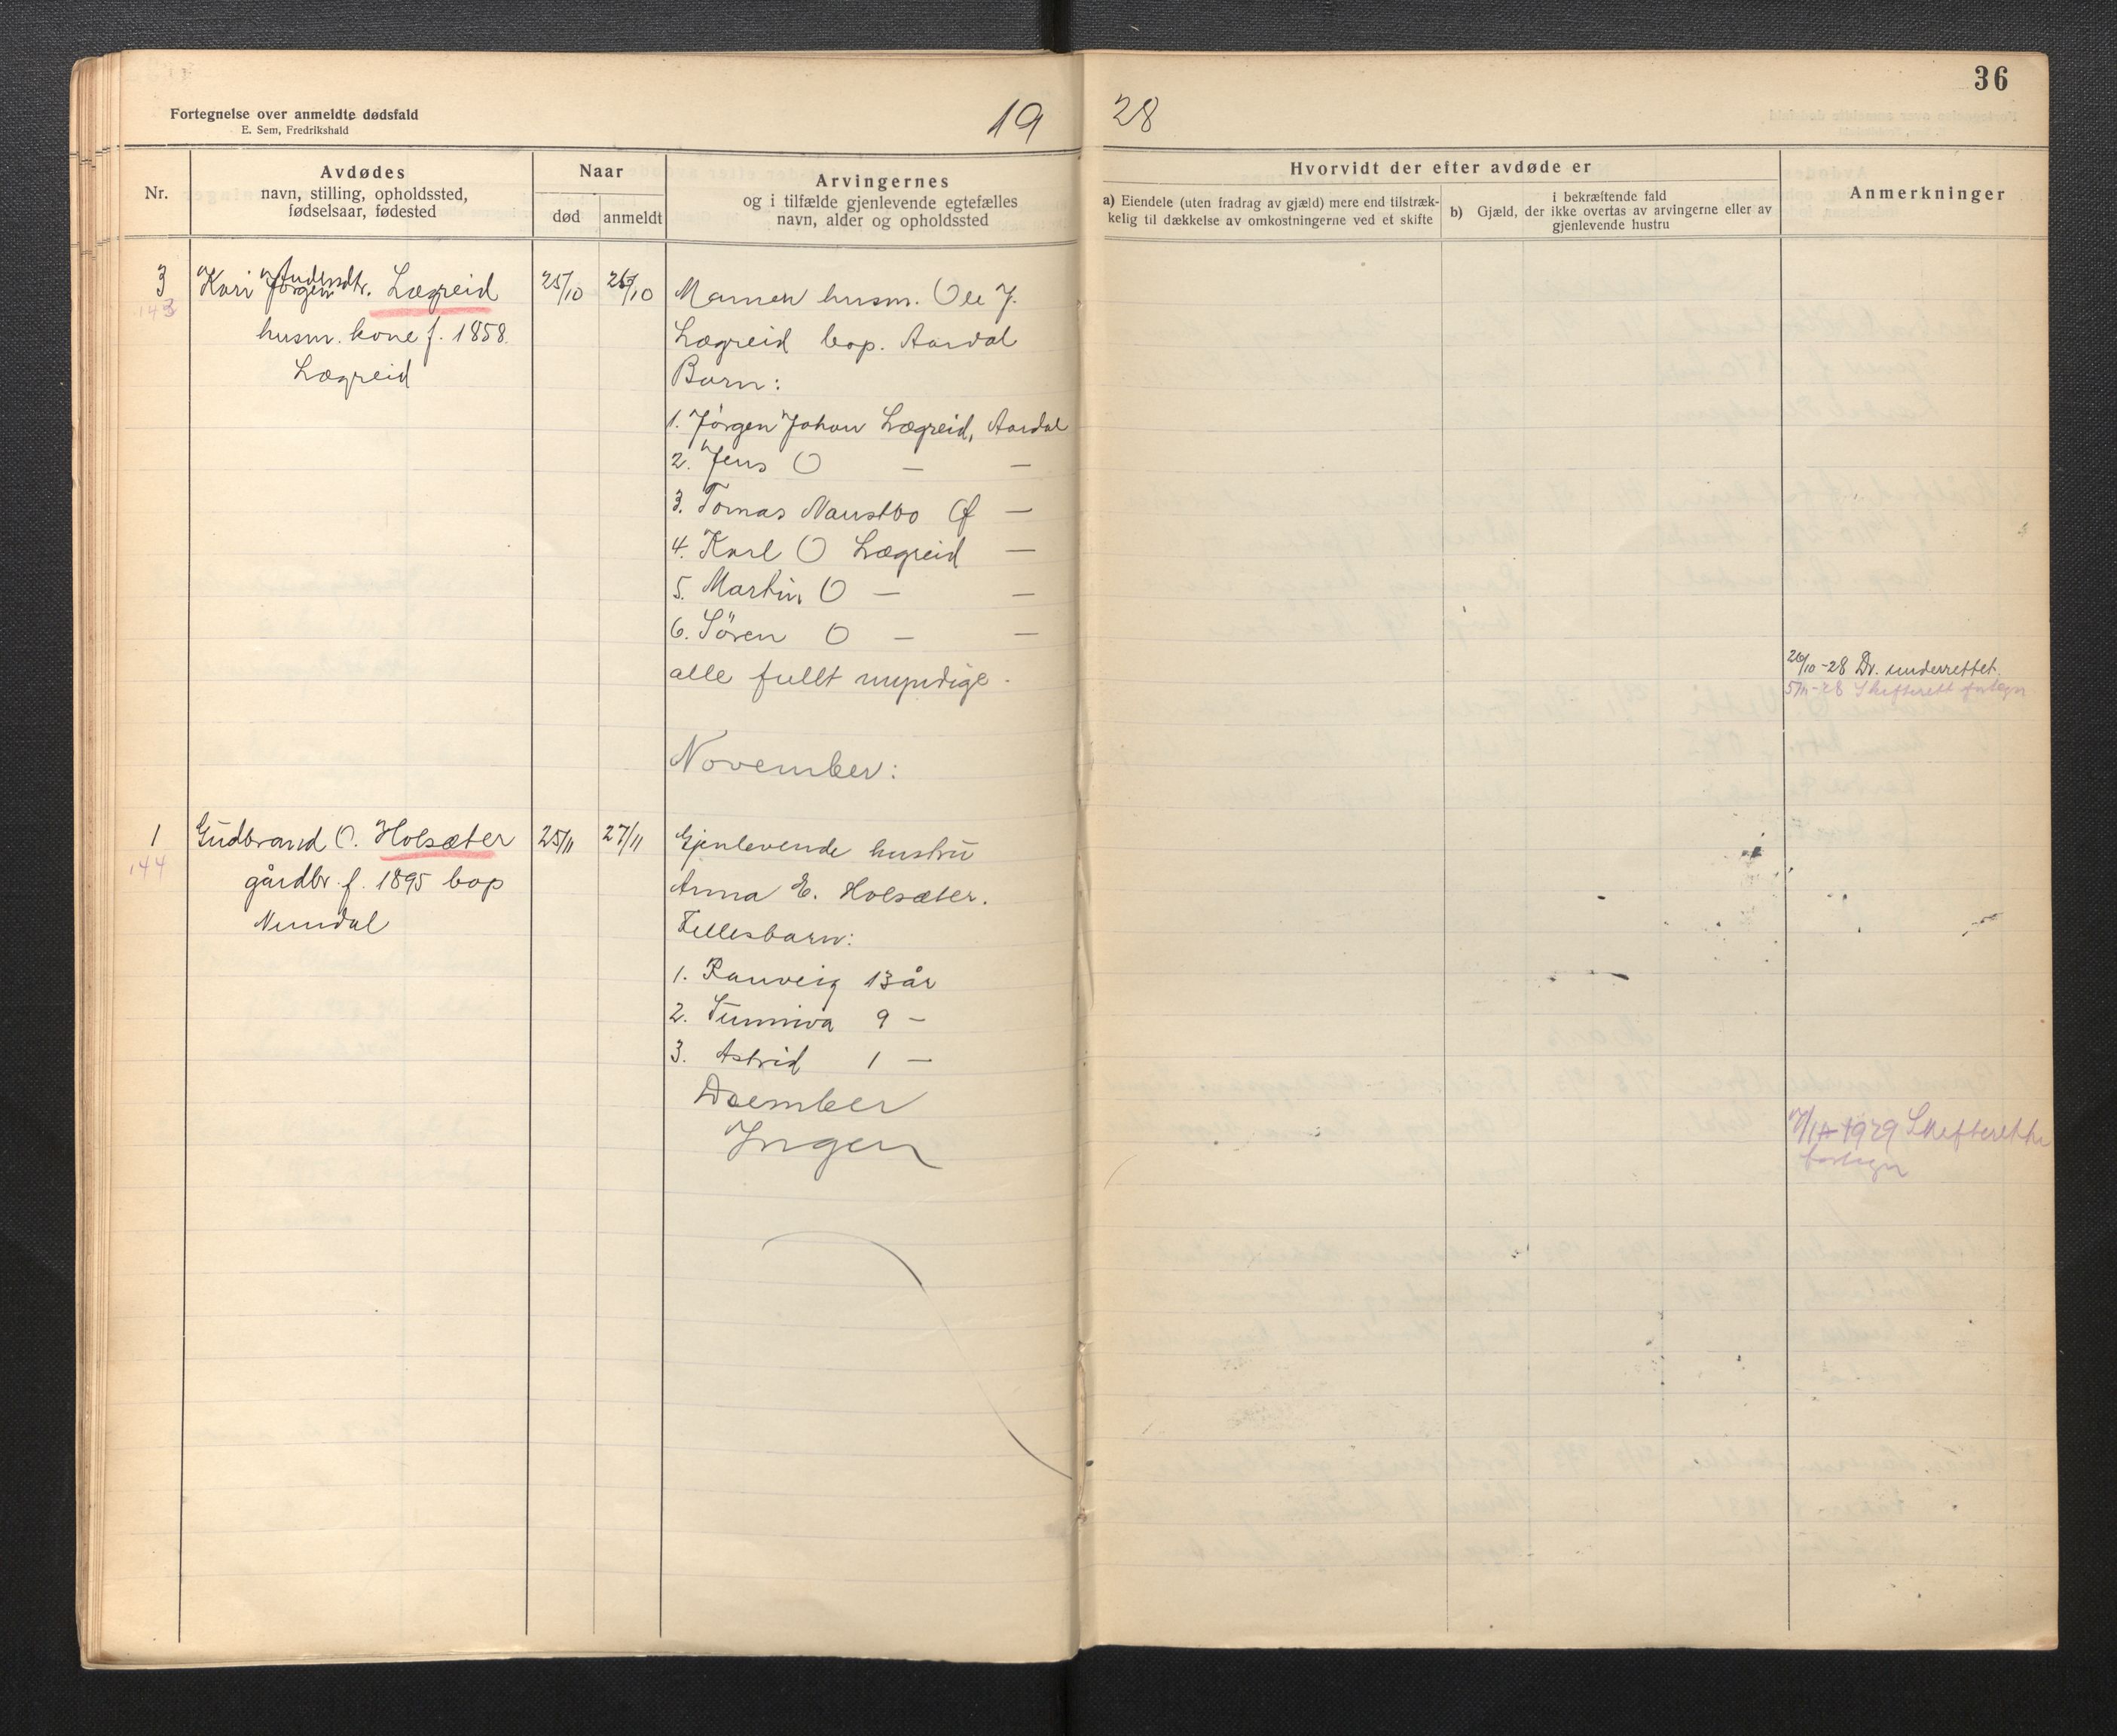 36
Fortegnelse over anmeldte dødsfald
E. Sem, Fredrikshald
19 28
Nr.
Avdødes
navn, stilling, opholdssted,
fødselsaar, fødested
Naar
død
anmeldt
Arvingernes
og i tilfælde gjenlevende egtefælles
navn, alder og opholdssted
Hvorvidt der efter avdøde er
a) Eiendele (uten fradrag av gjæld) mere end tilstræk-
kelig til dækkelse av omkostningerne ved et skifte
b) Gjæld, der
i bekræftende fald
ikke overtas av arvingerne eller av
gjenlevende hustru
Anmerkninger
3
143
Kari Jørgen Andersdtr. Lægreid
husm. kone f. 1858.
Lægreid
25/10
26/10
Mannen husm. Ole J.
Lægreid bop. Aardal
Barn:
1. Jörgen Johan Lægreid, Aardal
2. Jens O — —
3. Tomas Naustbo Of —
4. Karl O Lægreid —
5. Martin O — —
6. Sören O — —
alle fullt myndige.
26/10-28 Dv. underrettet.
5/11-28 Skifterett fortegn
November:
1
144
Gudbrand O. Holsæter
gårdbr. f. 1895 bop
Nundal
25/11
27/11
Gjenlevende hustru
Anna E. Holsæter.
Fellesbarn:
1. Ranveig 13 år
2. Sunniva 9 —
3. Astrid 1 —
Desember
Ingen
1929 Skifterette
fortegn